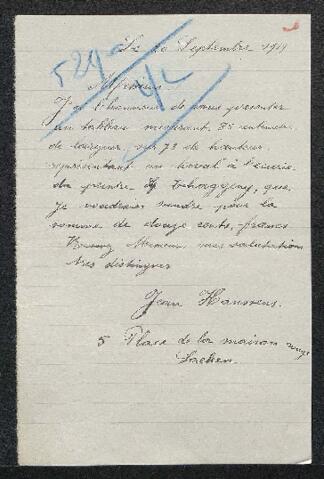 Le 10 Septembre 1919
529
Monsieur
J'ai l'honneur de vous presenter
un tableau mesurant, 85 centimetr
de largeur, sur 73 de hauteur
representant un cheval à l'écurie
du peintre Tchaggeny, que
je voudrais vendre pour la
somme de douze cents, francs
Recevez Monsieur mes salutations
très distingues
Jean Hanssens.
5 Place de la maison rouge
Laeken.